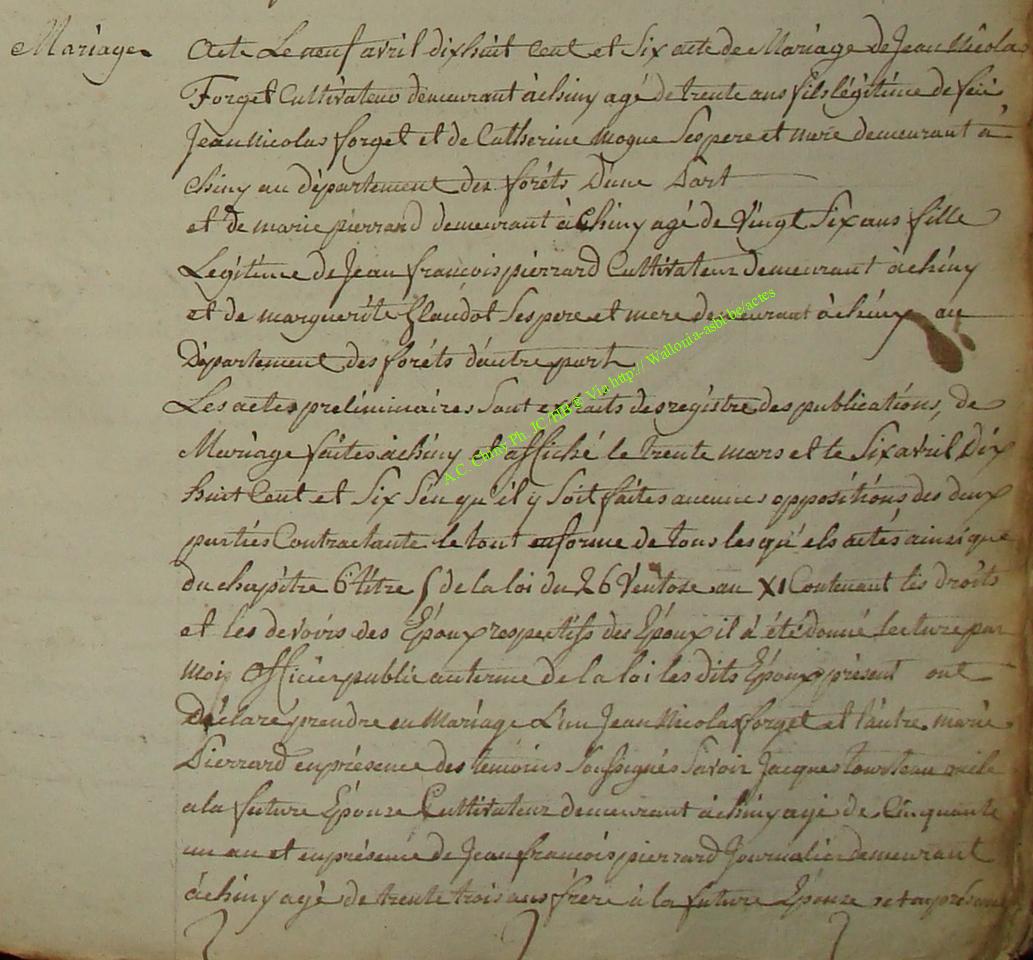 Mariage
Acte Le neuf avril dixhuit Cent et Six acte de Mariage de Jean Nicolas
Forget Cultivateur demeurant àchiny agé de trente ans fils légitime de feü
Jean Nicolas forget et de Catherine mogue Ses pere et mere demeurant à
Chiny au département des forêts D'une Part
et de marie pierrard demeurant à Chiny agé de Vingt Six ans fille
Légitime de Jean françois pierrard Cultivateur demeurant àchiny
et de marguerite Claudot Ses pere et mere demeurant àchiny au
Département des forêts d'autre part
Les actes preliminaires Sont extraits des registre des publications, de
Mariage faites àchiny et affiché le trente mars et le Six avril Dix
huit Cent et Six Sen qu'il y Soit faites aucunes oppositions des deux
parties Contractante le tout en forme de tous les qu'els actes ainsi que
du chapitre 6 titre 5 de la loi du 26 Ventose an XI Contenant les droits
et les devoirs des Epoux respectifs des Epoux il à été donné Lecture par
moi officier public au terme de la loi les dits Epoux présent ont
Déclaré prendre en Mariage L'un Jean Nicolas forget et l'autre marie
Pierrard en présence des témoins Soussignés Savoir Jacques tourteau oncle
a la future Epouse Cultivateur demeurant àchiny agé de Cinquante
un an et en présence de Jean françois pierrard Journalier demeurant
àchiny agé de trente trois ans frère à la future Epouse
A.C. Chiny Ph. JC Via http:// Wallonia-asbl.be/actes